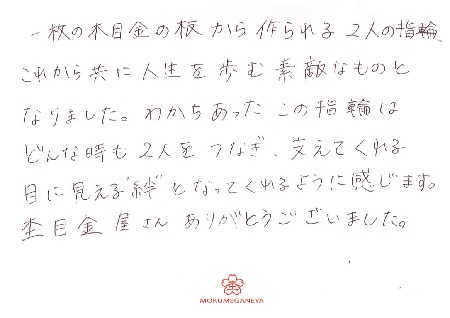 一枚の木目金の板から作られる2人の指輪
これから共に人生を歩む素敵なものと
なりました。わかちあったこの指輪は
どんな時も2人をつなぎ、支えてくれる
目に見える"絆"となってくれるように感じます。
杢目金屋さんありがとうございました。
MOKUMEGANEYA